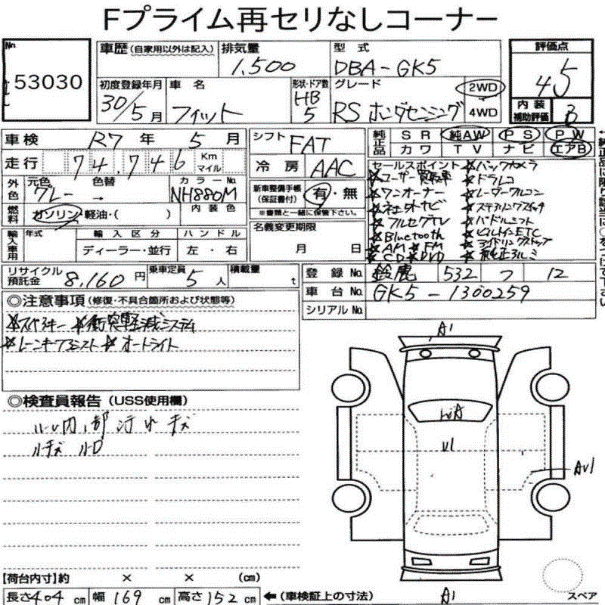 Fプライム再セリなしコーナー
No
53030
車歴 (自家用以外は記入)
排気量 1,500
型式 DBA-GK5
評価点 4.5
初度登録年月 30/5月
車名 フィット
形状・ドア数 HB 5
グレード RS ホンダセンシング
2WD
4WD
内装補助評価 B
車検 R7年 5月
シフト FAT
純正品 SR 純AW PS PW
カワ TV ナビ エアB
走行 74,746 Km マイル
冷房 AAC
外色 元色 グレー 色替
カラーNo NH880M
燃料 ガソリン・軽油・( )
内装色
新車整備手帳(保証書付) 有・無
※書類と一緒に保管下さい。
セールスポイント
★バックカメラ
★ユーザー買取車
★ドラレコ
★ワンオーナー
★社外ナビ
★フルセグTV
★パドルシフト
★Bluetooth
★ビルトインETC
★AM★FM
★アイドリングストップ
★CD★DVD
★純正アルミ
輸入車用 年式 輸入区分 ハンドル
ディーラー・並行 左・右
名義変更期限 月 日
リサイクル預託金 8,160円
乗車定員 5人
積載量 t
登録No. 鈴鹿 532 フ 12
車台No. GK5-1300259
シリアルNo.
◎注意事項 (修復・不具合箇所および状態等)
★スマートキー ★衝突軽減システム
★レーンキープアシスト ★オートライト
◎検査員報告 (USS使用欄)
A1
WA
U1
AU1
A1
【荷台内寸】約 × × (cm)
長さ404cm 幅169cm 高さ152cm
←(車検証上の寸法)
スペア